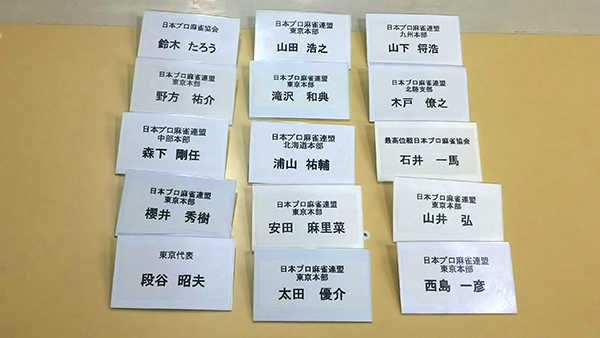 日本プロ麻雀協会
鈴木 たろう
日本プロ麻雀連盟
東京本部
山田 浩之
日本プロ麻雀連盟
九州本部
山下 将浩
日本プロ麻雀連盟
東京本部
野方 祐介
日本プロ麻雀連盟
東京本部
滝沢 和典
日本プロ麻雀連盟
北陸支部
木戸 僚之
日本プロ麻雀連盟
中部本部
森下 剛任
日本プロ麻雀連盟
北海道本部
浦山 祐輔
最高位戦日本プロ麻雀協会
石井 一馬
日本プロ麻雀連盟
東京本部
櫻井 秀樹
日本プロ麻雀連盟
東京本部
安田 麻里菜
日本プロ麻雀連盟
東京本部
山井 弘
東京代表
段谷 昭夫
日本プロ麻雀連盟
東京本部
太田 優介
日本プロ麻雀連盟
東京本部
西島 一彦